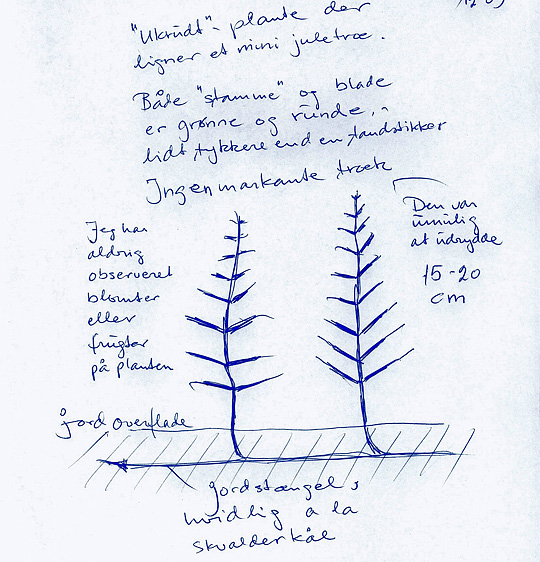 "Ukrudt"-plante der
ligner et mini juletræ.
Både "stamme" og blade
er grønne og runde,
lidt tykkere end en tandstikker
Ingen markante træk
Den var
umulig
at udrydde
15-20
cm
Jeg har
aldrig
observeret
blomster
eller
frugter
på planten
jord overflade
jordstængel,
hvidlig a la
skvalderkål